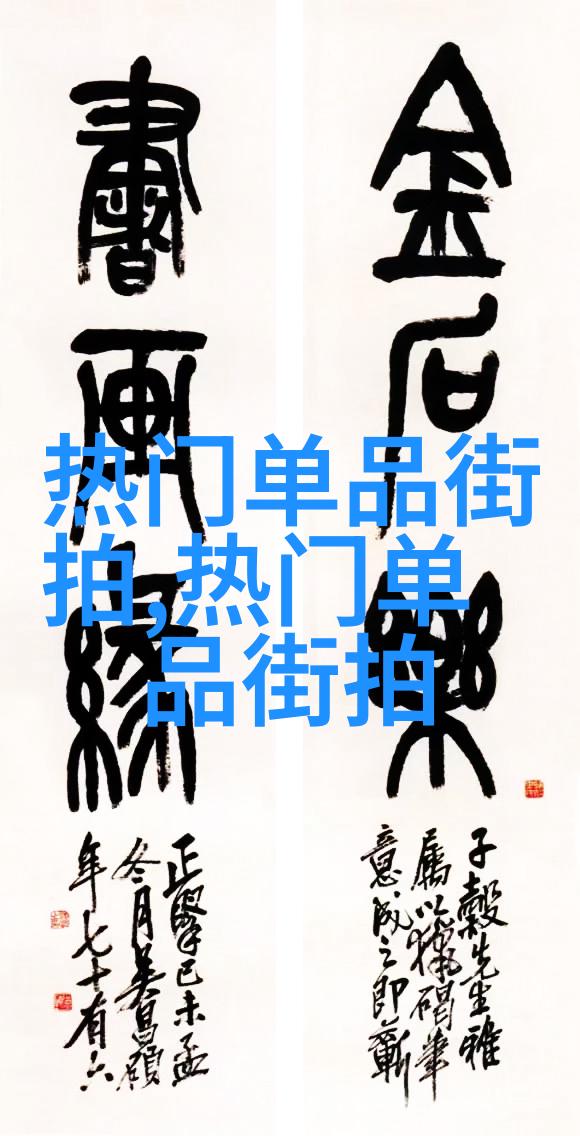 金石樂
書畫緣
子穀先生雅
屬以獵碣筆
意成之即蘄
正 己未孟
冬月吳昌碩
年七十有六
热门单品街
拍,热门单
品街拍